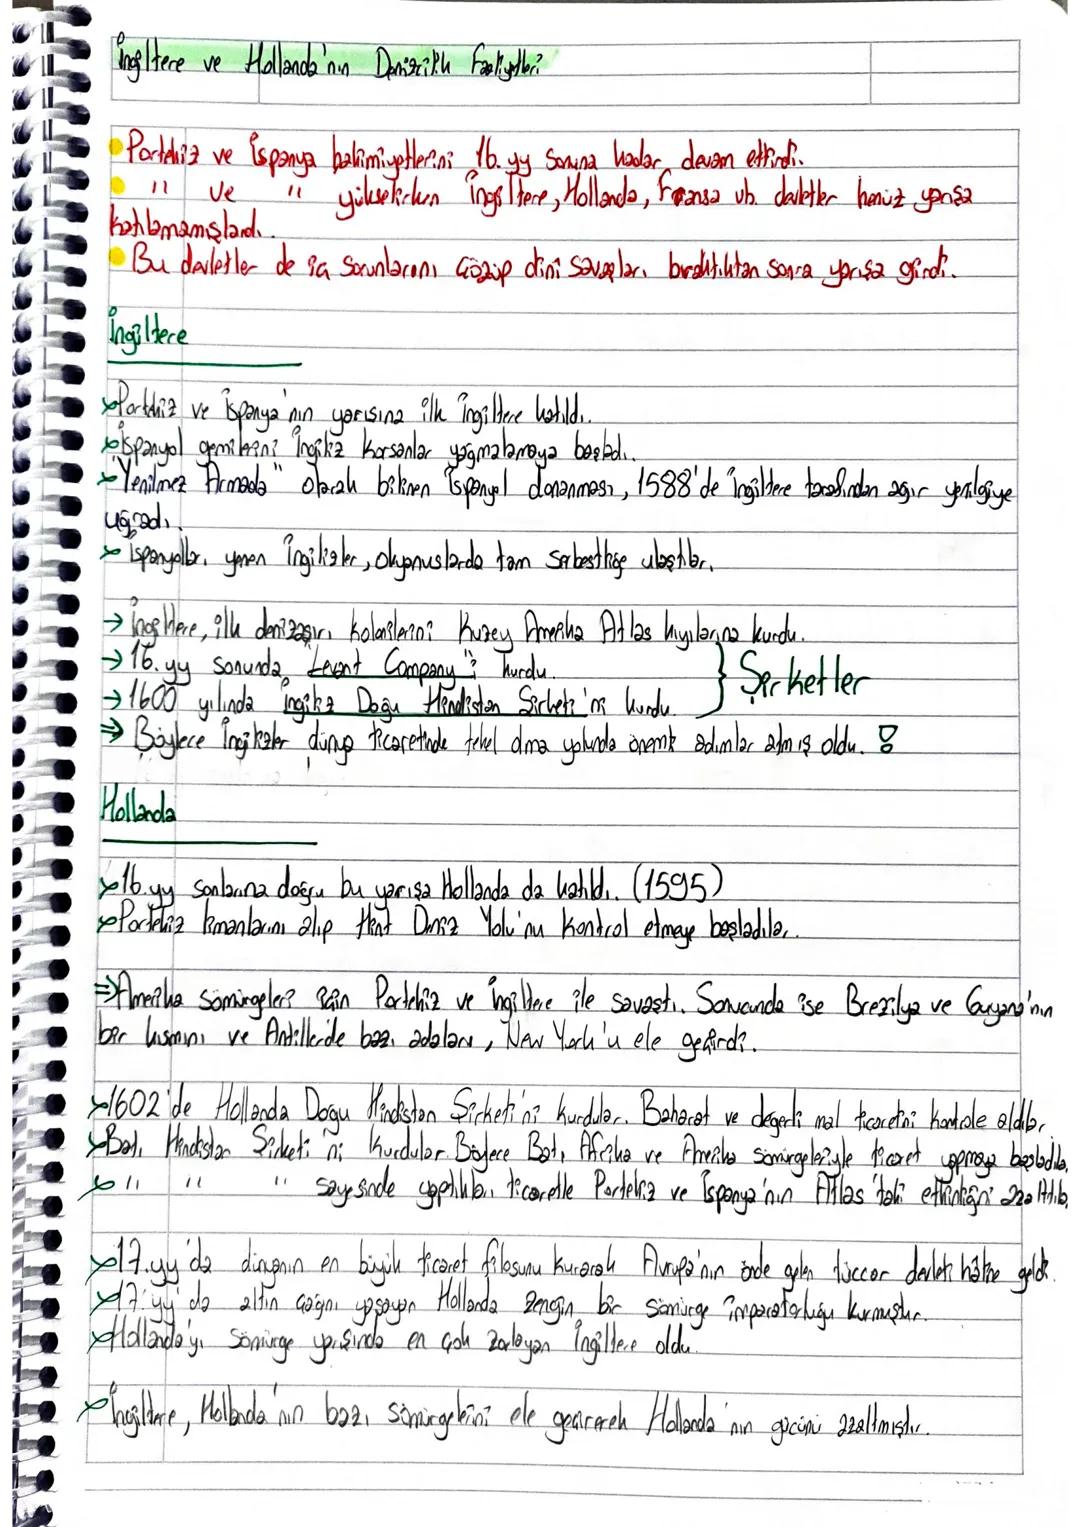 İngiltere ve Hollanda'nın Denizcilik Faaliyetleri
Portekiz ve İspanya hakimiyetlerini 16. yy sonuna kadar devam ettirdi.
" ve " yükselirken İngiltere, Hollanda, Fransa vb. devletler henüz yarışa
katılmamışlardı.
Bu devletler de iç sorunlarını çözüp dini savaşları bıraktıktan sonra yarışa girdi.
İngiltere
Portekiz ve İspanya'nın yarışına ilk İngiltere katıldı.
İspanyol gemilerini İngiliz korsanlar yağmalamaya başladı.
"Yenilmez Armada" olarak bilinen İspanyol donanması, 1588'de İngiltere tarafından ağır yenilgiye
uğradı.
İspanyolları yenen İngilizler, okyanuslarda tam serbestliğe ulaştılar.
→ İngiltere, ilk denizaşırı kolonilerini Kuzey Amerika Atlas kıyılarına kurdu.
→ 16. yy sonunda "Levant Company"i kurdu.
→ 1600 yılında İngiliz Doğu Hindistan Şirketi'ni kurdu.
} Şirketler
⇒ Böylece İngilizler dünya ticaretinde tekel olma yolunda önemli adımlar atmış oldu. !
Hollanda
16. yy sonlarına doğru bu yarışa Hollanda da katıldı. (1595)
Portekiz limanlarını alıp Hint Deniz Yolu'nu kontrol etmeye başladılar.
⇒ Amerika sömürgeleri için Portekiz ve İngiltere ile savaştı. Sonucunda ise Brezilya ve Guyana'nın
bir kısmını ve Antillerde bazı adaları, New York'u ele geçirdi.
1602'de Hollanda Doğu Hindistan Şirketi'ni kurdular. Baharat ve değerli mal ticaretini kontrole aldılar.
Batı Hindistan Şirketi'ni kurdular Böylece Batı Afrika ve Amerika sömürgeleriyle ticaret yapmaya başladılar.
" " " sayesinde yaptıkları ticaretle Portekiz ve İspanya'nın Atlas'taki etkinliğini azalttılar.
17. yy'da dünyanın en büyük ticaret filosunu kurarak Avrupa'nın önde gelen tüccar devleti haline geldi.
17. yy'da altın çağını yaşayan Hollanda zengin bir sömürge imparatorluğu kurmuştur.
Hollanda'yı sömürge yarışında en çok zorlayan İngiltere oldu.
İngiltere, Hollanda'nın bazı sömürgelerini ele geçirerek Hollanda'nın gücünü azaltmıştır.